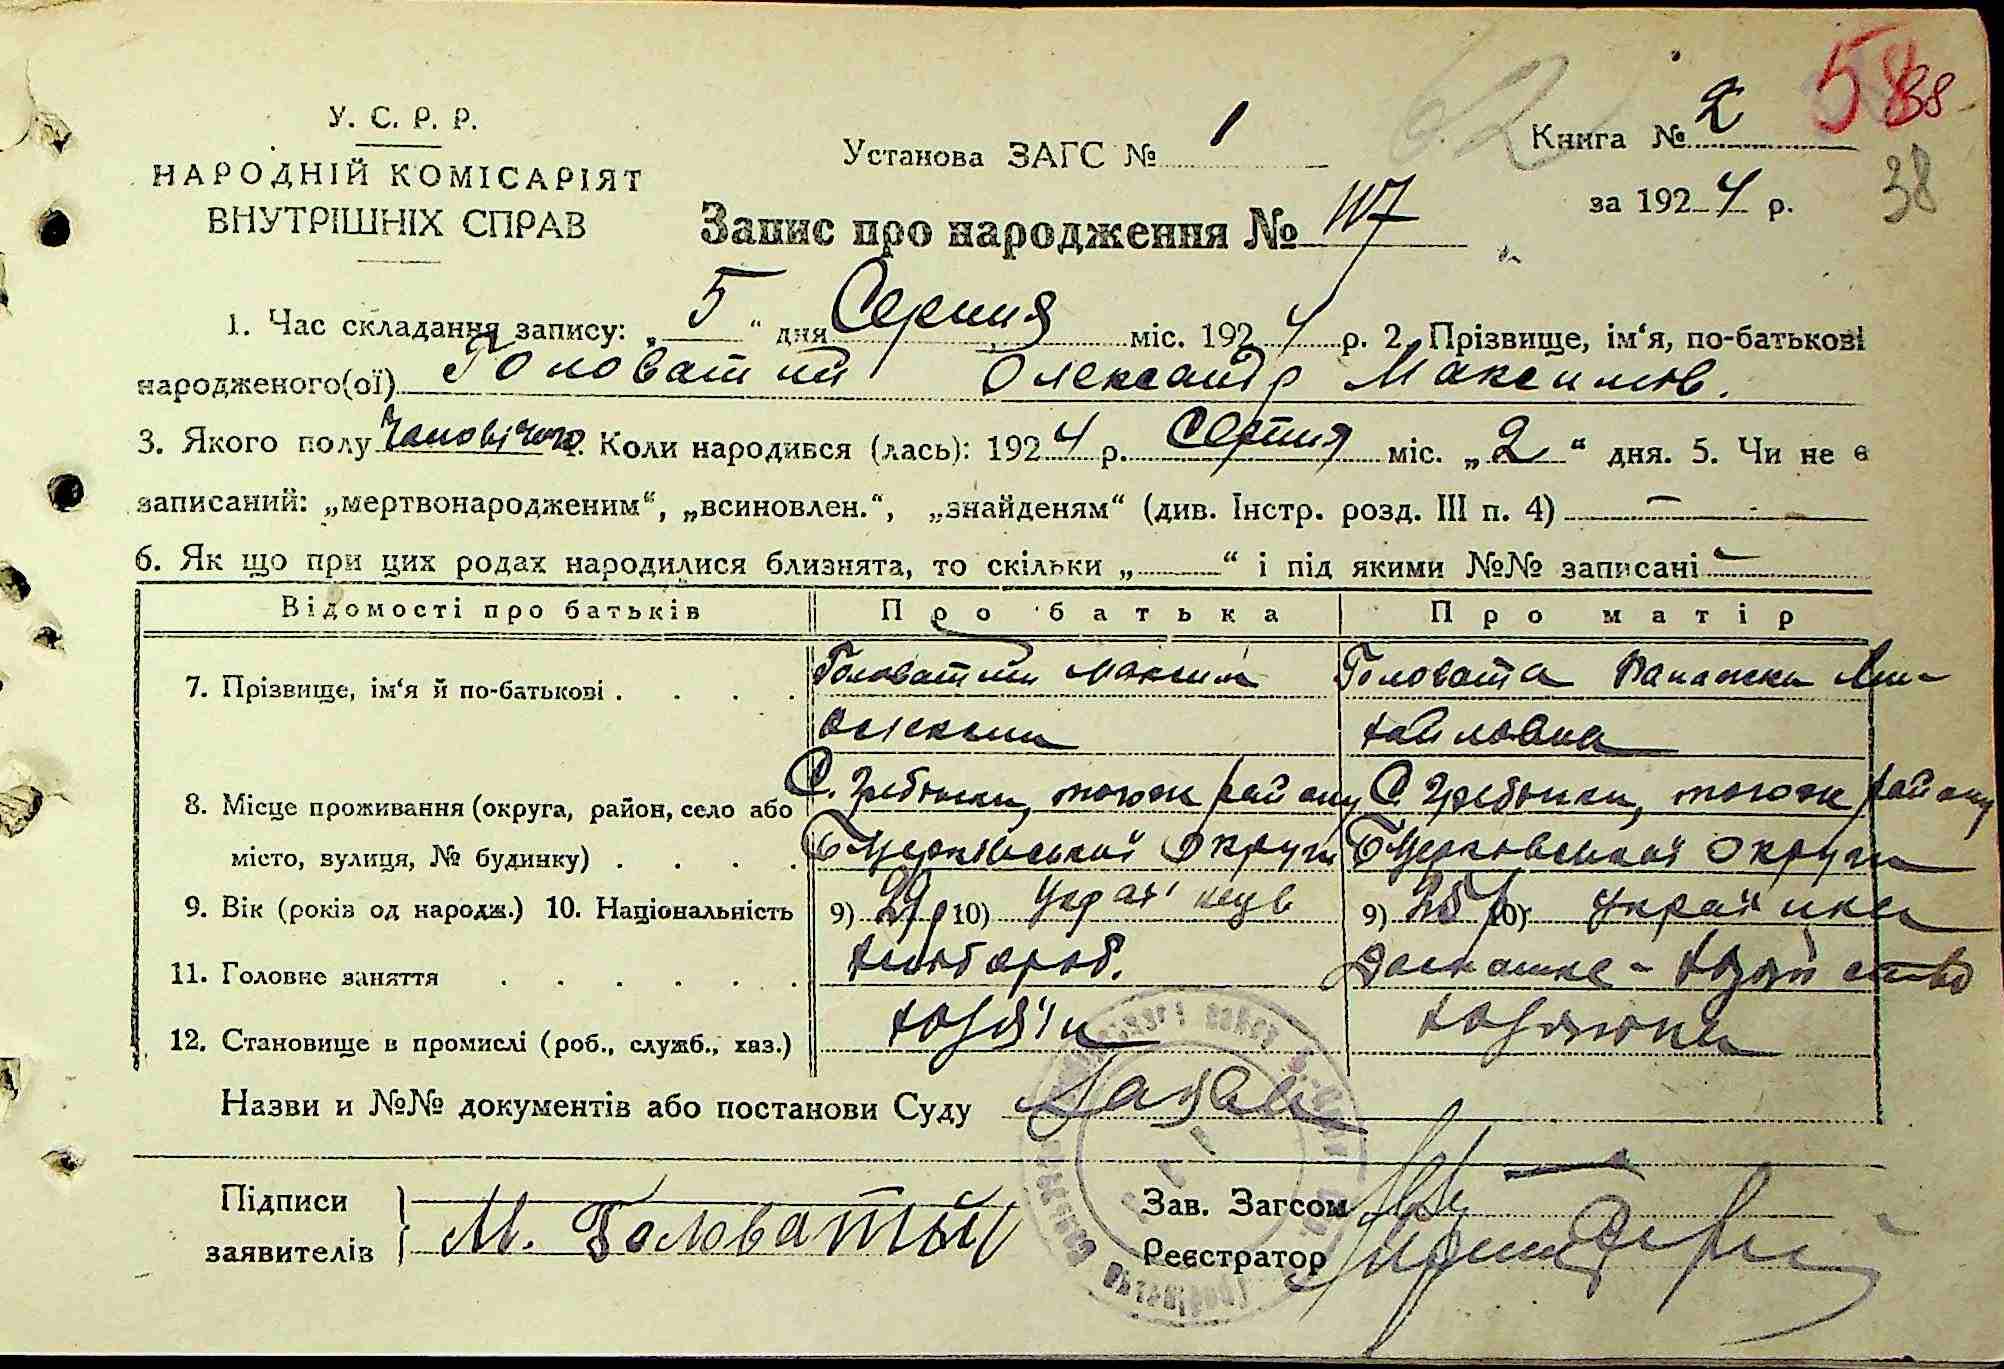 58 38
У. С. Р. Р.
НАРОДНІЙ КОМІСАРІЯТ
ВНУТРІШНІХ СПРАВ
Установа ЗАГС № 1
62
Книга № 2
за 1924 р.
38
Запис про народження № 117
1. Час складання запису: „5“ дня Серпня міс. 1924 р. 2. Прізвище, ім‘я, по-батькові
народженого(ої) Головатий Олександр Максимов.
3. Якого полу Чоловічого 4. Коли народився (лась): 1924 р. Серпня міс. „2“ дня. 5. Чи не є
записаний: „мертвонародженим“, „всиновлен.“, „знайденям“ (див. Інстр. розд. III п. 4) —
6. Як що при цих родах народилися близнята, то скільки „ “ і під якими №№ записані —
Відомості про батьків Про батька Про матір
7. Прізвище, ім‘я й по-батькові . . . . Головатий Максим Головата Ми-
Олексии хайловна
8. Місце проживання (округа, район, село або С. Гребінки, тогож району С. Гребінки, тогож району
місто, вулиця, № будинку) . . . . БЦерківської Округи БЦерковської Округи
9. Вік (років од народж.) 10. Національність 9) 29р 10) Украї нець 9) 25р 10) Українка
11. Головне заняття . . . . . . . хлібороб. Домашнє-хазяйство
12. Становище в промислі (роб., служб., хаз.) хазяїн хазяюка
Назви и №№ документів або постанови Суду
Підписи
заявителів
М. Головатый
Зав. Загсом
Реєстратор